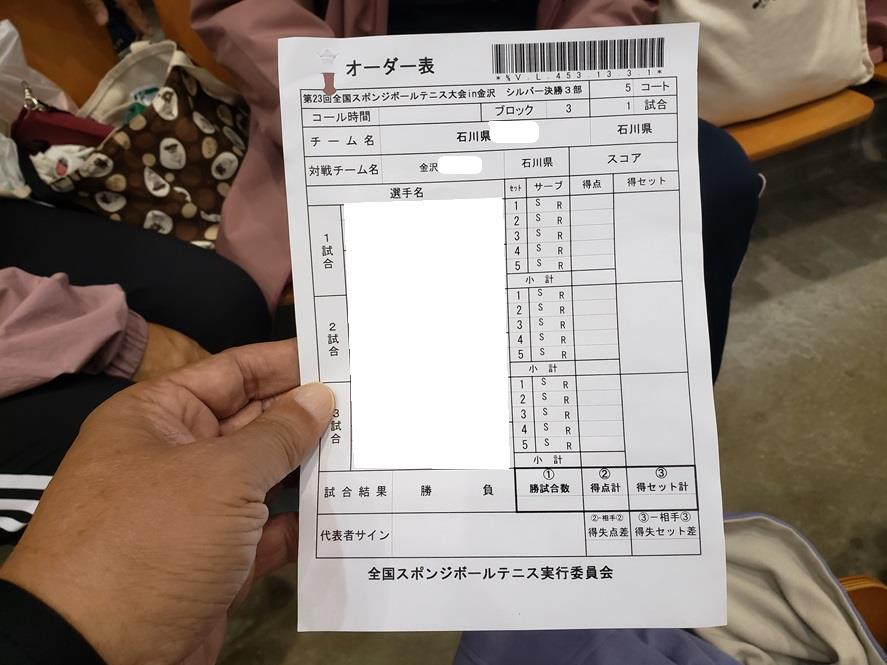 オーダー表
*%V.L.453.13.3.1*
第23回全国スポンジボールテニス大会in金沢 シルバー決勝3部 5 コート
コール時間 ブロック 3 1 試合
チーム名 石川県 石川県
対戦チーム名 金沢 石川県 スコア
選手名 セット サーブ 得点 得セット
1試合
1 S R
2 S R
3 S R
4 S R
5 S R
小計
2試合
1 S R
2 S R
3 S R
4 S R
5 S R
小計
3試合
1 S R
2 S R
3 S R
4 S R
5 S R
小計
試合結果 勝 負 ①勝試合数 ②得点計 ③得セット計
代表者サイン ②-相手② 得失点差 ③-相手③ 得失セット差
全国スポンジボールテニス実行委員会